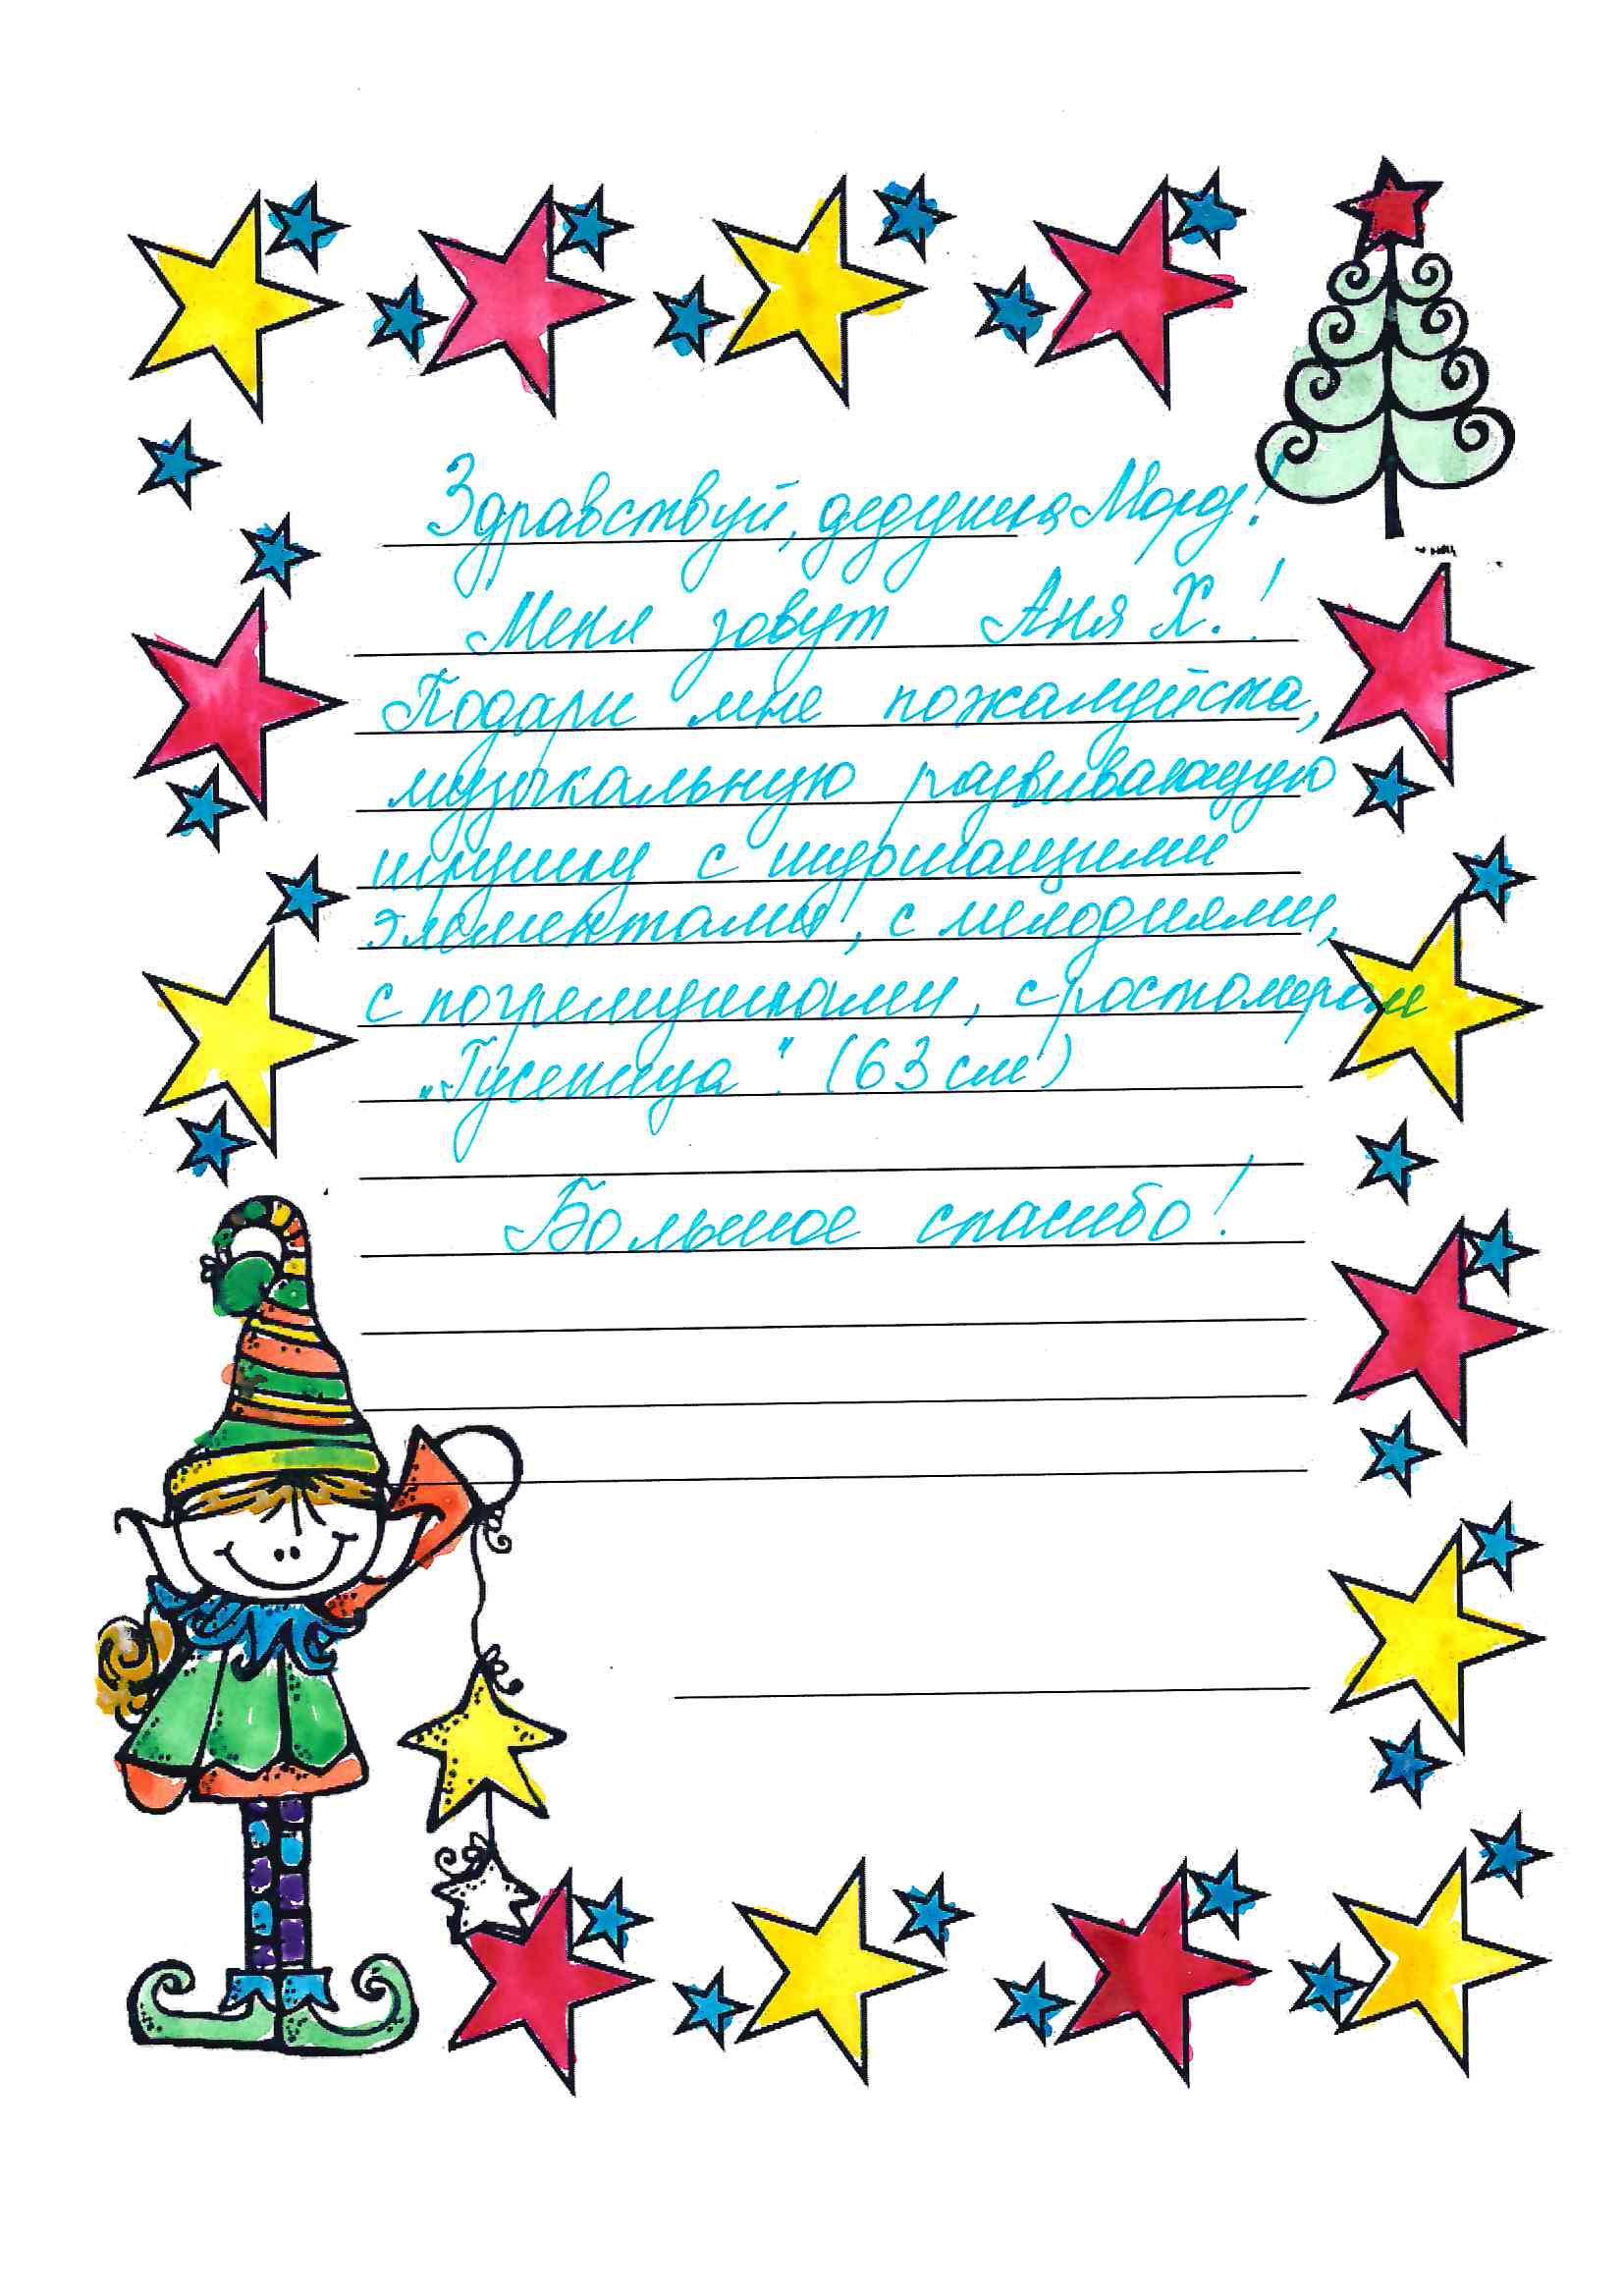 Здравствуй, дедушка Мороз!
Меня зовут Аня Х.!
Подари мне пожалуйста,
музыкальную развивающую
игрушку с шуршащими
элементами, с мелодиями,
с погремушками, с ростомером
„Гусеница". (63 см)
Большое спасибо!